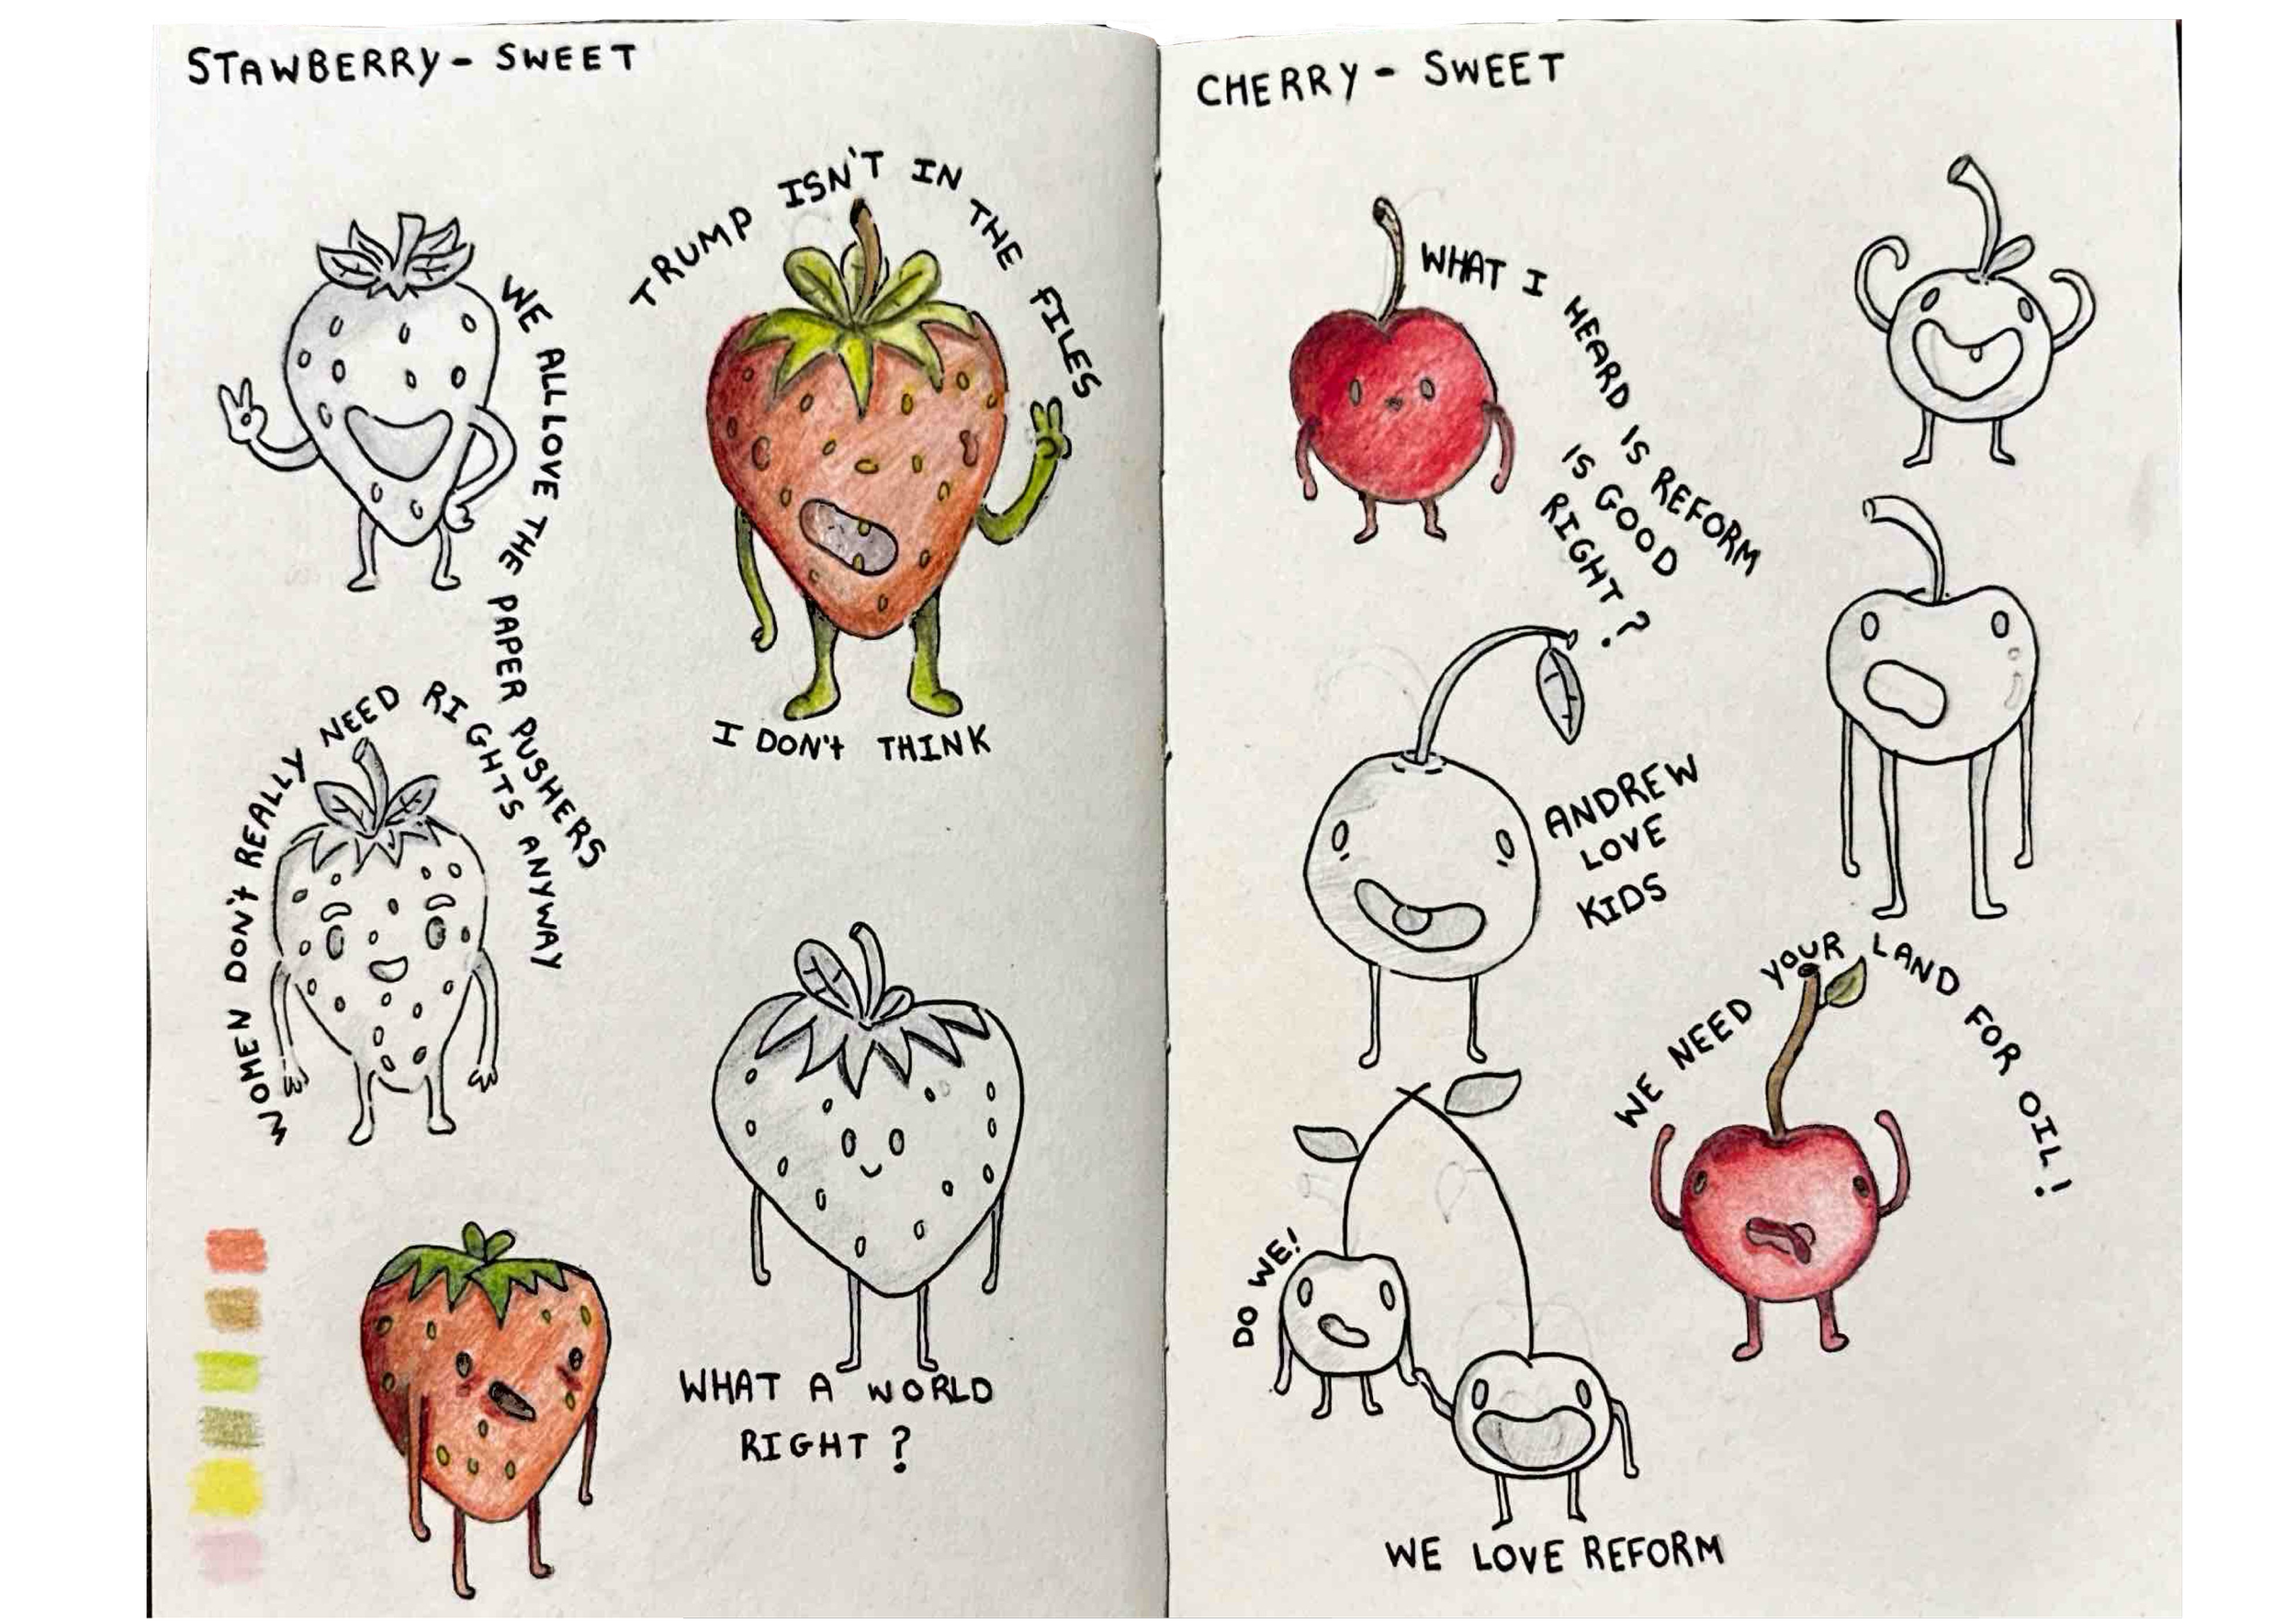 STAWBERRY - SWEET
TRUMP ISN'T IN THE FILES
I DON't THINK
WE ALL LOVE THE PAPER PUSHERS
WOMEN DON't REALLY NEED RIGHTS ANYWAY
WHAT A WORLD
RIGHT?
CHERRY - SWEET
WHAT I HEARD IS REFORM
IS GOOD
RIGHT?
ANDREW
LOVE
KIDS
WE NEED YOUR LAND FOR OIL!
DO WE!
WE LOVE REFORM